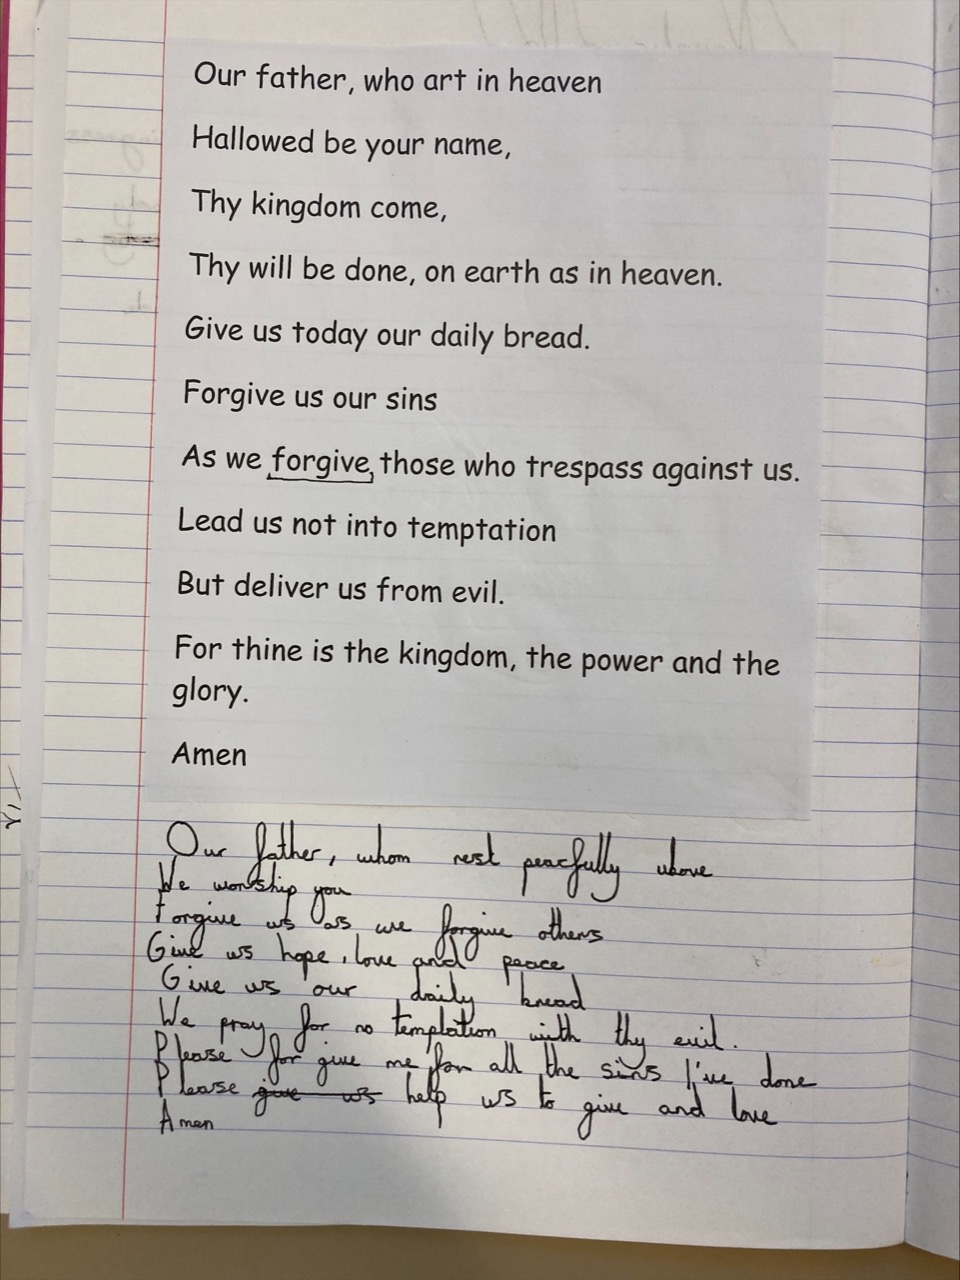 Our father, who art in heaven
Hallowed be your name,
Thy kingdom come,
Thy will be done, on earth as in heaven.
Give us today our daily bread.
Forgive us our sins
As we forgive, those who trespass against us.
Lead us not into temptation
But deliver us from evil.
For thine is the kingdom, the power and the
glory.
Amen
Our father, whom rest peacfully above
We worship you
Forgive us as we forgive others
Give us hope, love and peace
Give us our daily bread
We pray for no templation with thy evil.
Please for give me for all the sins I've done
Please give us help us to give and love
Amen